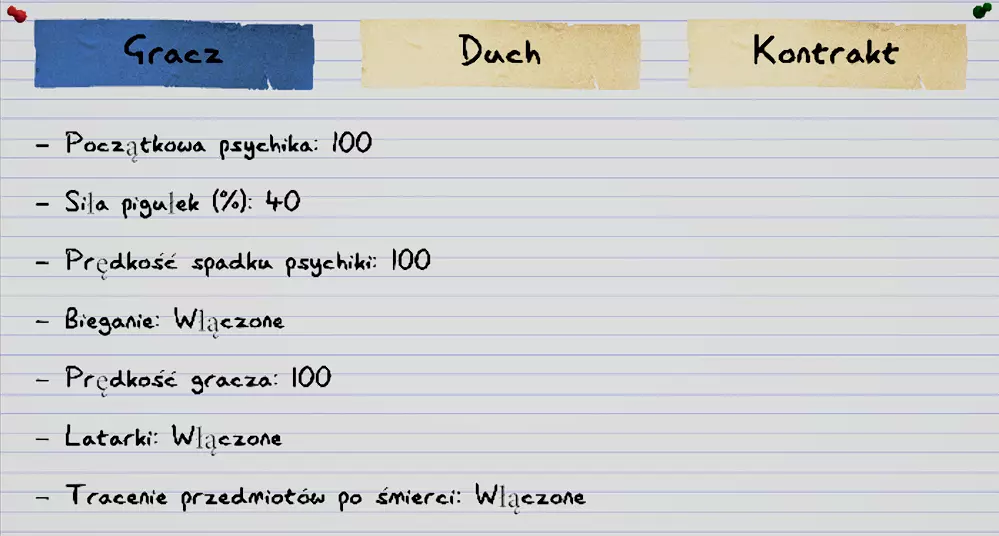 Gracz Duch Kontrakt
- Początkowa psychika: 100
- Siła pigułek (%): 40
- Prędkość spadku psychiki: 100
- Bieganie: Włączone
- Prędkość gracza: 100
- Latarki: Włączone
- Tracenie przedmiotów po śmierci: Włączone